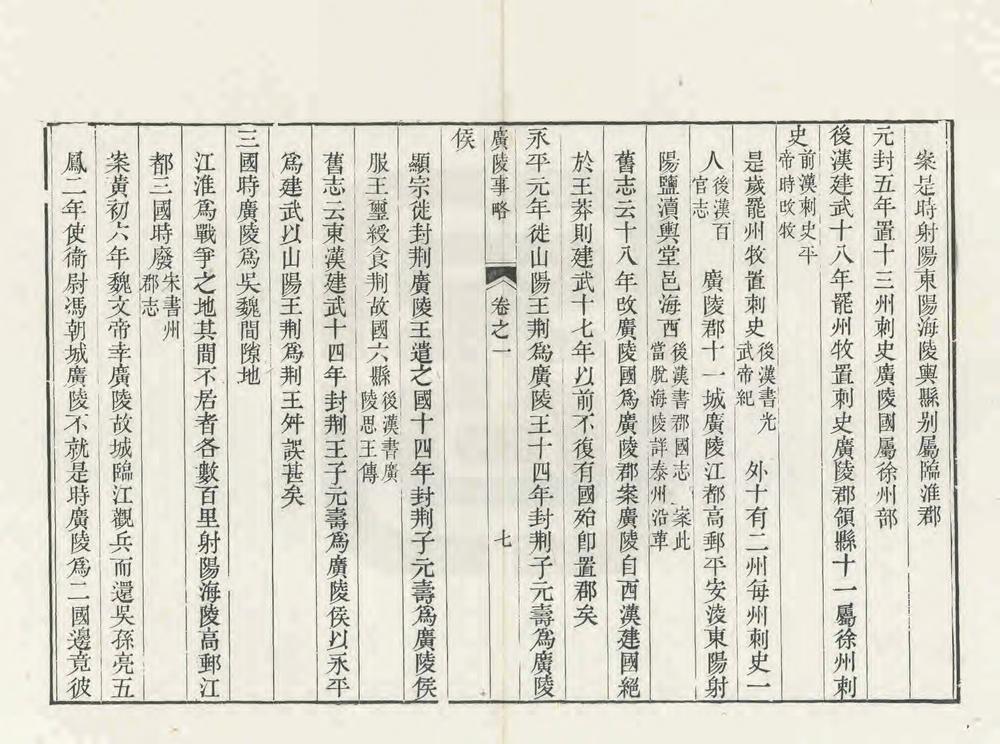 案是時射陽東陽海陵輿縣别屬臨淮郡
元封五年置十三州刺史廣陵國屬徐州部
後漢建武十八年罷州牧置刺史廣陵郡領縣十一屬徐州刺
史前漢刺史平帝時改牧
是歲罷州牧置刺史後漢書光武帝紀 外十有二州每州刺史一
人後漢百官志 廣陵郡十一城廣陵江都高郵平安淩東陽射
陽鹽瀆輿堂邑海西後漢書郡國志 案此當脫海陵詳泰州沿革
舊志云十八年改廣陵國爲廣陵郡案廣陵自西漢建國絕
於王莽則建武十七年以前不復有國殆卽置郡矣
永平元年徙山陽王荆爲廣陵王十四年封荆子元壽爲廣陵
廣陵事略 卷之一 七
侯
顯宗徙封荆廣陵王遣之國十四年封荆子元壽爲廣陵侯
服王璽綬食荆故國六縣後漢書廣陵思王傳
舊志云東漢建武十四年封荆王子元壽爲廣陵侯以永平
爲建武以山陽王荆爲荆王舛誤甚矣
三國時廣陵爲吳魏間隙地
江淮爲戰爭之地其間不居者各數百里射陽海陵高郵江
都三國時廢宋書州郡志
案黃初六年魏文帝幸廣陵故城臨江觀兵而還吳孫亮五
鳳二年使衞尉馮朝城廣陵不就是時廣陵爲二國邊竟彼